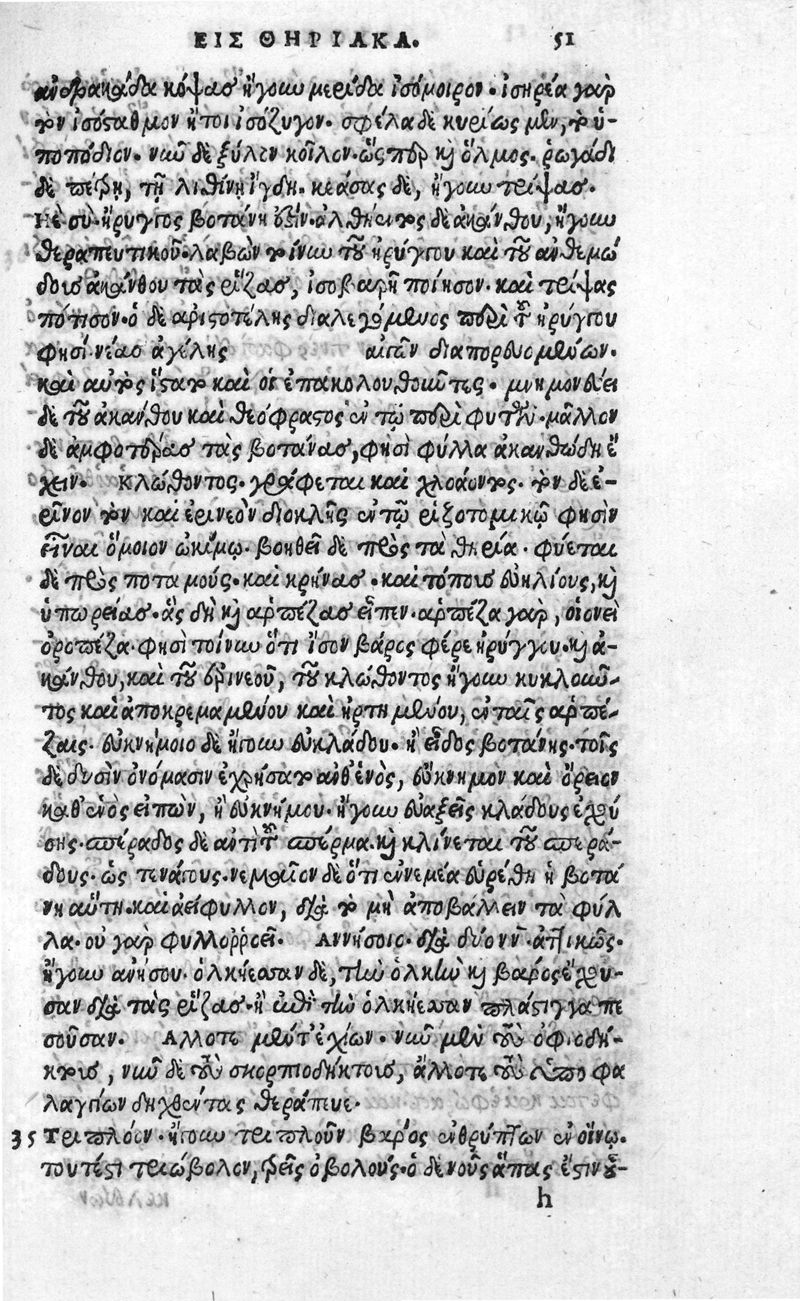 ΕΙΣ ΘΗΡΙΑΚΑ. 51
ανδρακάδα κόψας ἤγουν μερίδα ἰσόμοιρον. ἰσηρέα γὰρ
τὸν ἰσόσταθμον ἤτοι ἰσόζυγον. σφέλα δὲ κυρίως μὲν, τὸ ὑ-
ποπόδιον. νῦν δὲ ξύλον κοῖλον. ὥσπερ καὶ ὅλμος. ῥωγάδι
δὲ πέτρῃ, τῇ λιθίνῃ ἴγδῃ. κεάσας δὲ, ἤγουν τρίψας.
Ηὲ σὺ. ἠρυγγος βοτάνη ἐστίν. ἀλθήεντος δὲ ἀκάνθου, ἤγουν
θεραπευτικοῦ. λαβὼν τοίνυν τοῦ ἠρύγγου καὶ τοῦ ανθεμώ
δους ἀκάνθου τὰς ῥίζας, ἰσοβαρῆ ποίησον. καὶ τρίψας
πότισον. ὁ δὲ αριστοτέλης διαλεγόμενος περὶ τοῦ ἠρύγγου
φησὶ. νέας ἀγέλης αἰγῶν διαπορευομένων.
καὶ αὐτὸς ἵστατο καὶ οἱ ἐπακολουθοῦντες. μνημονεύει
δὲ τοῦ ἀκάνθου καὶ θεόφραστος ἐν τῷ περὶ φυτῶν. μᾶλλον
δὲ ἀμφοτέρας τὰς βοτάνας, φησὶ φύλλα ἀκανθώδη ἔ
χειν. Κλώθοντος. γράφεται καὶ χλοάοντος. τὸν δὲ ἐ-
ρῖνον τὸν καὶ ἐρινεὸν διοκλῆς ἐν τῷ ῥιζοτομικῷ φησὶν
εἶναι ὅμοιον ὠκίμῳ. βοηθεῖ δὲ πρὸς τὰ θηρία. φύεται
δὲ πρὸς ποταμούς. καὶ κρήνας. καὶ τόποις εὐηλίους, καὶ
ὑπωρείας. ἃς δὴ καὶ αρπέζας εἶπεν. αρπέζα γὰρ, οἱονεὶ
ὀροπέζα. φησὶ τοίνυν ὅτι ἴσον βάρος φέρε ἠρύγγου. καὶ ἀ-
κάνθου, καὶ τοῦ ἐρινεοῦ, τοῦ κλώθοντος ἤγουν κυκλοῦν-
τος καὶ ἀποκρεμαμένου καὶ ἠρτημένου, ἐν ταῖς αρπέ-
ζαις. εὐκνήμοιο δὲ ἤτοι εὐκλάδου. ἢ εἶδος βοτάνης. τοῖς
δὲ δυσὶν ὀνόμασιν ἐχρήσατο ανθ᾽ ἑνὸς, εὔκνημον καὶ ὄρειον
καθ᾽ ἑνὸς εἰπὼν, ἢ εὐκνήμου. ἤγουν εὐαξεῖς κλάδους ἐχού
σης. σπέραδος δὲ αντὶ τοῦ σπέρμα. καὶ κλίνεται τοῦ σπερά-
δους. ὡς τεμάχους. νεμεαῖον δὲ ὅτι ἐν νεμέα εὑρέθη ἡ βοτά
νη αὕτη. καὶ ἀείφυλλον, διὰ τὸ μὴ ἀποβάλλειν τὰ φύλ
λα. οὐ γὰρ φυλλορροεῖ. Αννήσοις. διὰ δύο νν. ἀττικῶς.
ἤγουν ανήσου. ὁλκήεσσαν δὲ, τὴν ὁλκὴν καὶ βάρος ἔχου-
σαν διὰ τὰς ῥίζας. ἢ ἐπὶ τὴν ὁλκήεσσαν πλάστιγγα πε
σοῦσαν. Αλλοτε μέν τ᾽ ἐχίων. νῦν μὲν τοὺς ὀφιοδή-
κτους, νῦν δὲ τοὺς σκορπιοδήκτους, ἄλλοτε τοὺς ὑπὸ φα
λαγγίων δηχθέντας θεράπευε.
35 Τριπλόον. ἤγουν τριπλοῦν βάρος ἐνθρύπτων ἐν οἴνῳ.
τουτέστι τριώβολον, τρεῖς ὀβολούς. ὁ δὲ νοῦς ἅπας ἐστὶν οὗ-
h